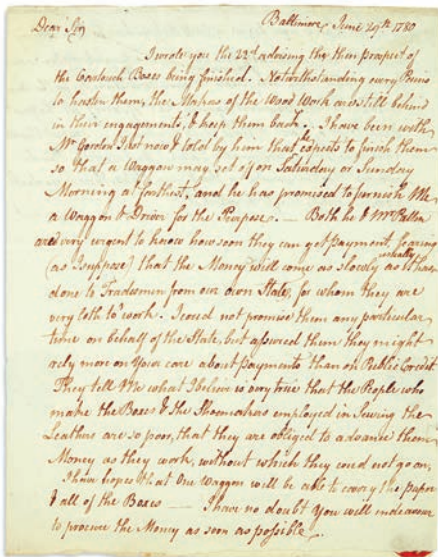 Baltimore June 29th 1780
Dear Sir
I wrote you the 22d advising the then prospect of
the Cartouch Boxes being finished. Notwithstanding every Pains
to hasten them, the Makers of the Wood Work are still behind
in their engagements, & keep them back. I have been with
Mr Gordon Just now & told by him that he expects to finish them
so that a Waggon may set off on Saturday or Sunday
Morning at farthest, and he has promised to furnish Me
a Waggon & Driver for the Purpose. — Both he & Mr
are very urgent to know how soon they can get payment, fearing
(as I suppose) that the Money will come as slowly as it has usually
done to Tradesmen from our own State, for whom they are
very loth to work. I coud not promise them any particular
time on behalf of the State, but assured them they might
rely more on Your care about payments than on Public Credit
They tell Me what I believe is very true that the People who
make the Boxes & the Shoemakers employed in Sewing the
Leathers are so poor, that they are obliged to advance them
Money as they work, without which they coud not go on.
I have hopes that One Waggon will be able to carry the paper
& all of the Boxes — I have no doubt You will endeavour
to procure the Money as soon as possible.